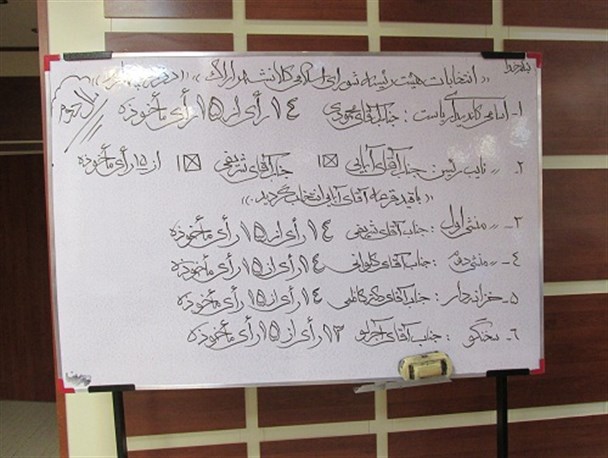 بنام خدا
(( انتخابات هیئت رئیسه شورای اسلامی کلانشهر اراک )) ((دوره چهارم))
سال دوم
۱- اسامی کاندیدای ریاست : جناب آقای محمودی ۱۴ رأی از ۱۵ رأی مأخوذه
۲- " نایب رئیس : جناب آقای آبایی ☒۱ جناب آقای شریفی ☒۱ از ۱۵ رأی مأخوذه
(( با قید قرعه آقای آبایی انتخاب گردید . ))
۳- " منشی اول : جناب آقای شریفی ۱۴ رأی از ۱۵ رأی مأخوذه
۴- " منشی دوم : جناب آقای گلوانی ۱۴ رأی از ۱۵ رأی مأخوذه
۵- خزانه دار : جناب آقای دکتر کاظمی ۱۴ رأی از ۱۵ رأی مأخوذه
۶- سخنگو : جناب آقای آجرلو ۱۳ رأی از ۱۵ رأی مأخوذه